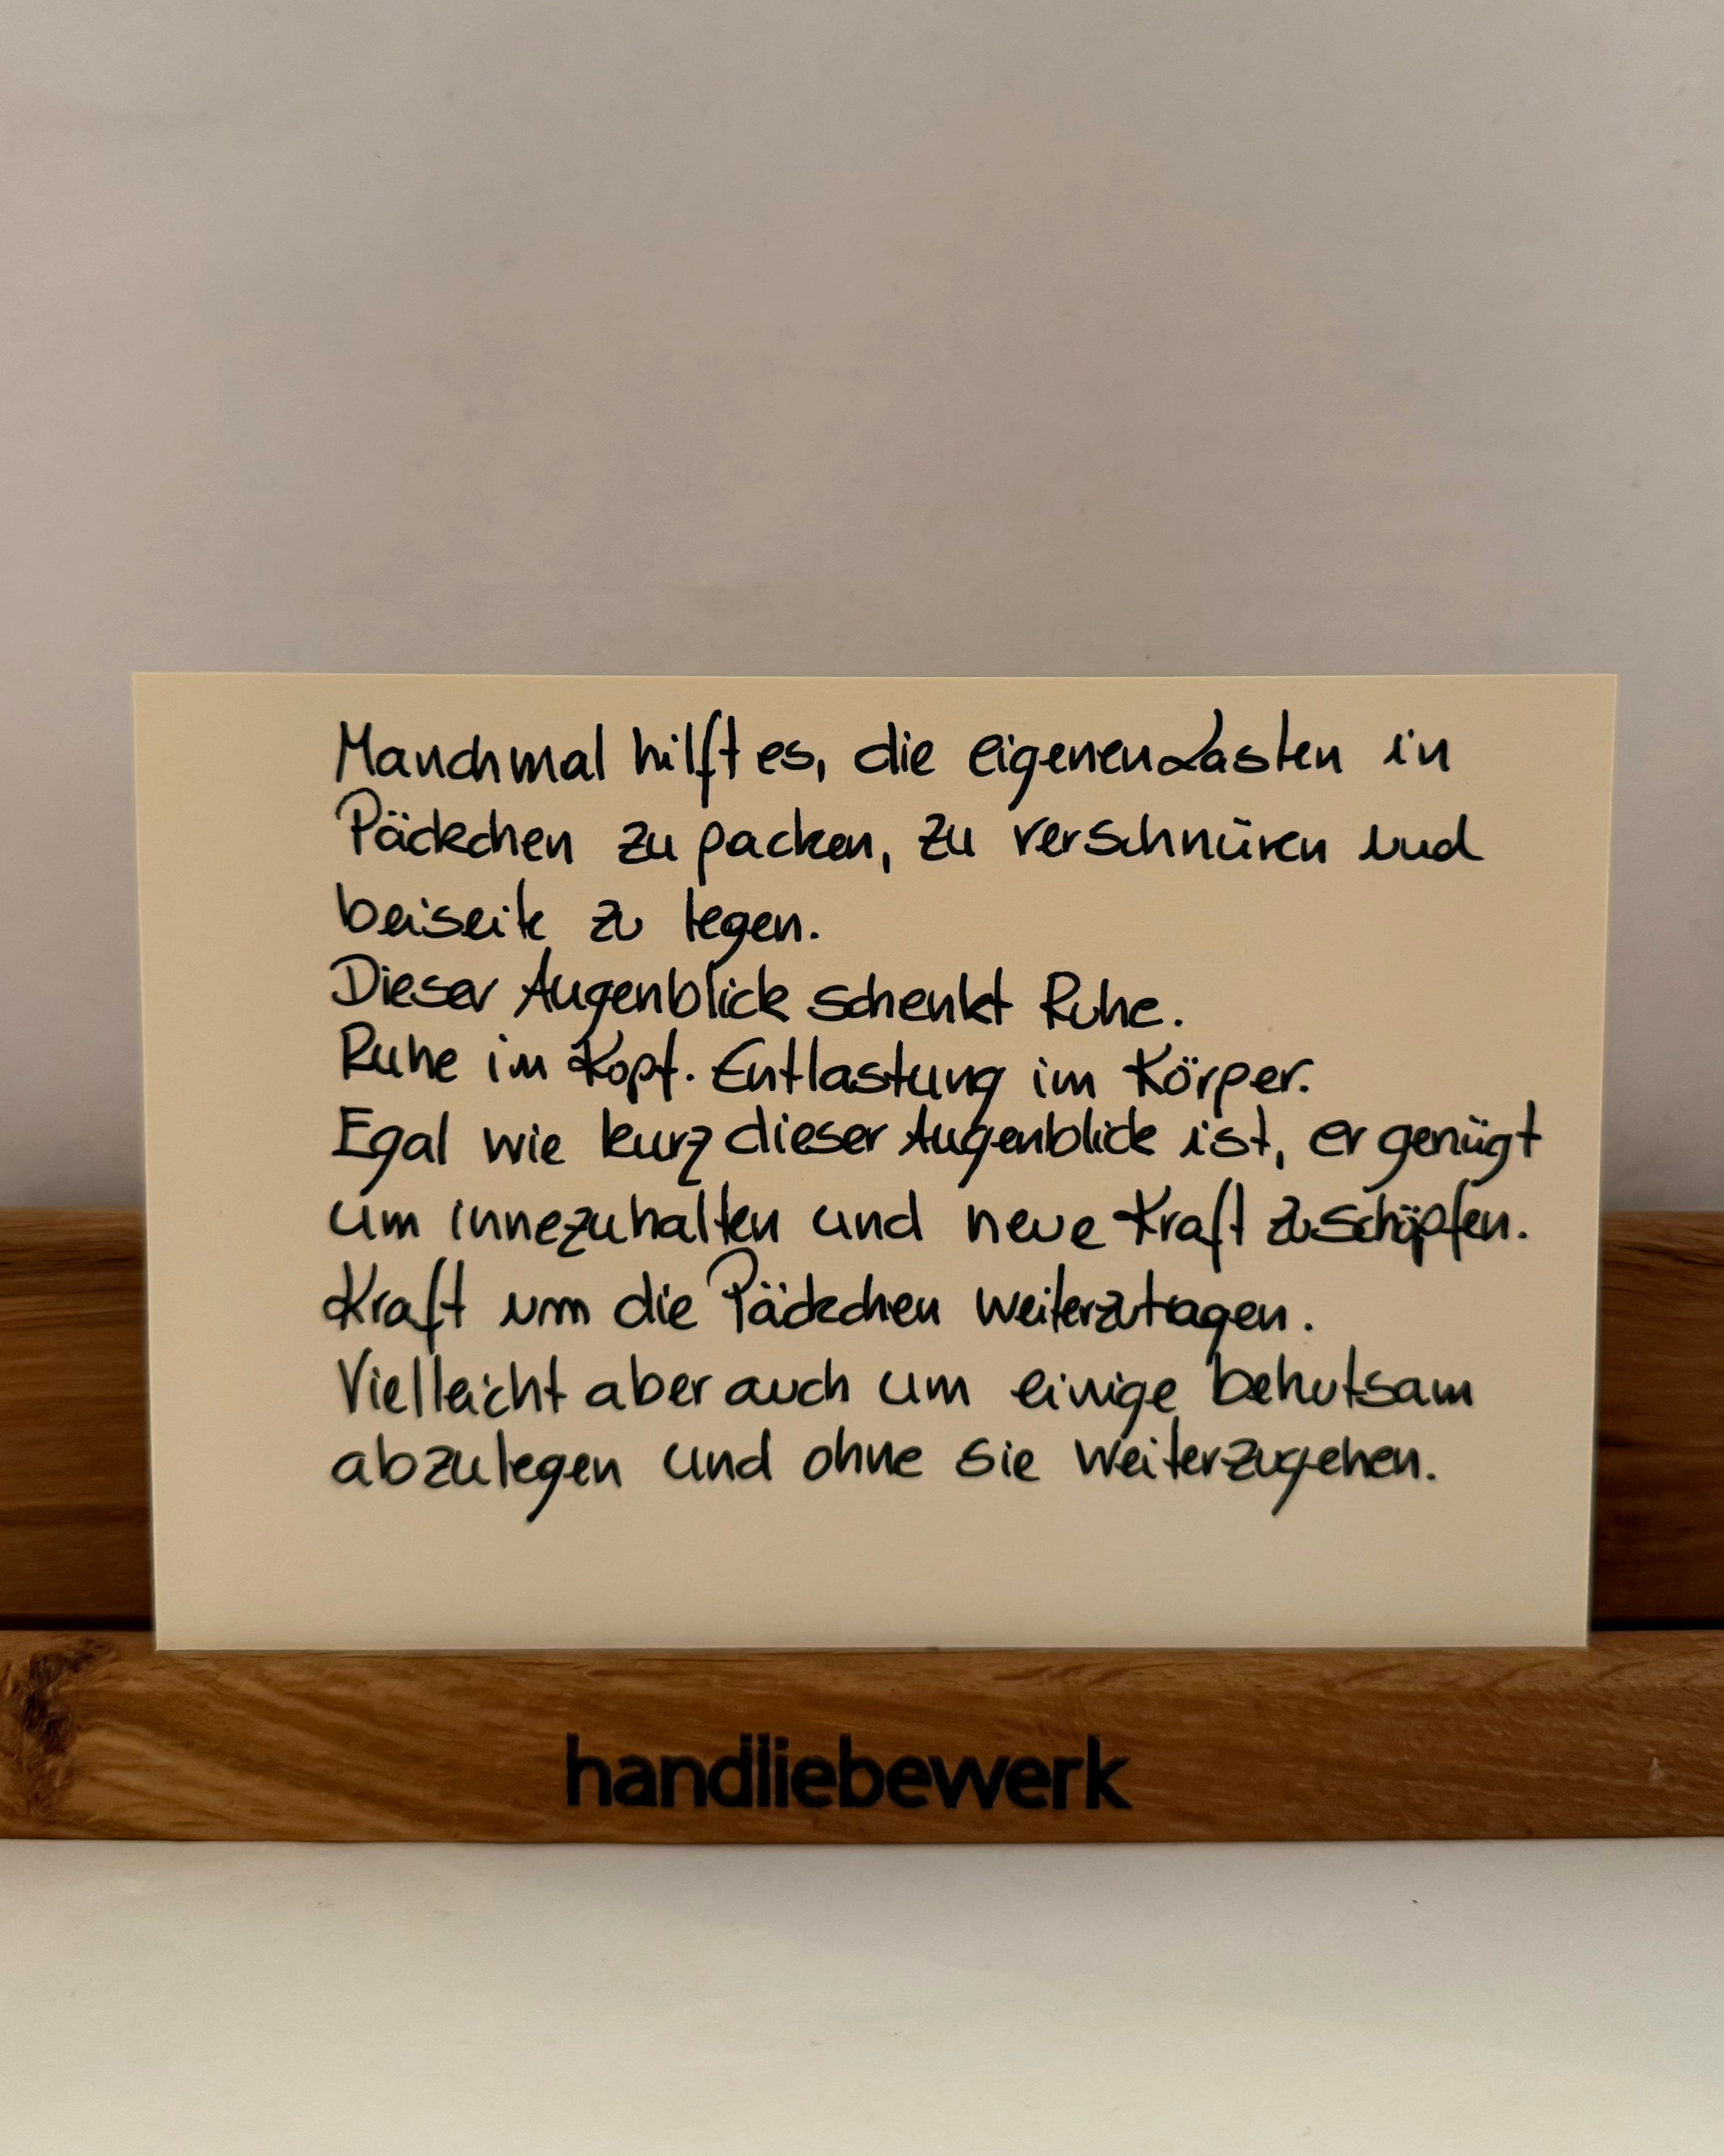 Manchmal hilft es, die eigenen Lasten in
Päckchen zu packen, zu verschnüren und
beiseite zu legen.
Dieser Augenblick schenkt Ruhe.
Ruhe im Kopf. Entlastung im Körper.
Egal wie kurz dieser Augenblick ist, er genügt
um innezuhalten und neue Kraft zu schöpfen.
Kraft um die Päckchen weiterzutragen.
Vielleicht aber auch um einige behutsam
abzulegen und ohne sie weiterzugehen.
handliebewerk